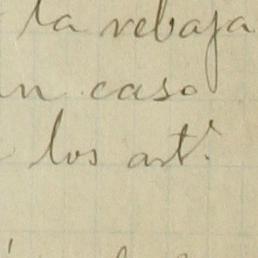 la rebaja
un caso
los art.ˢ